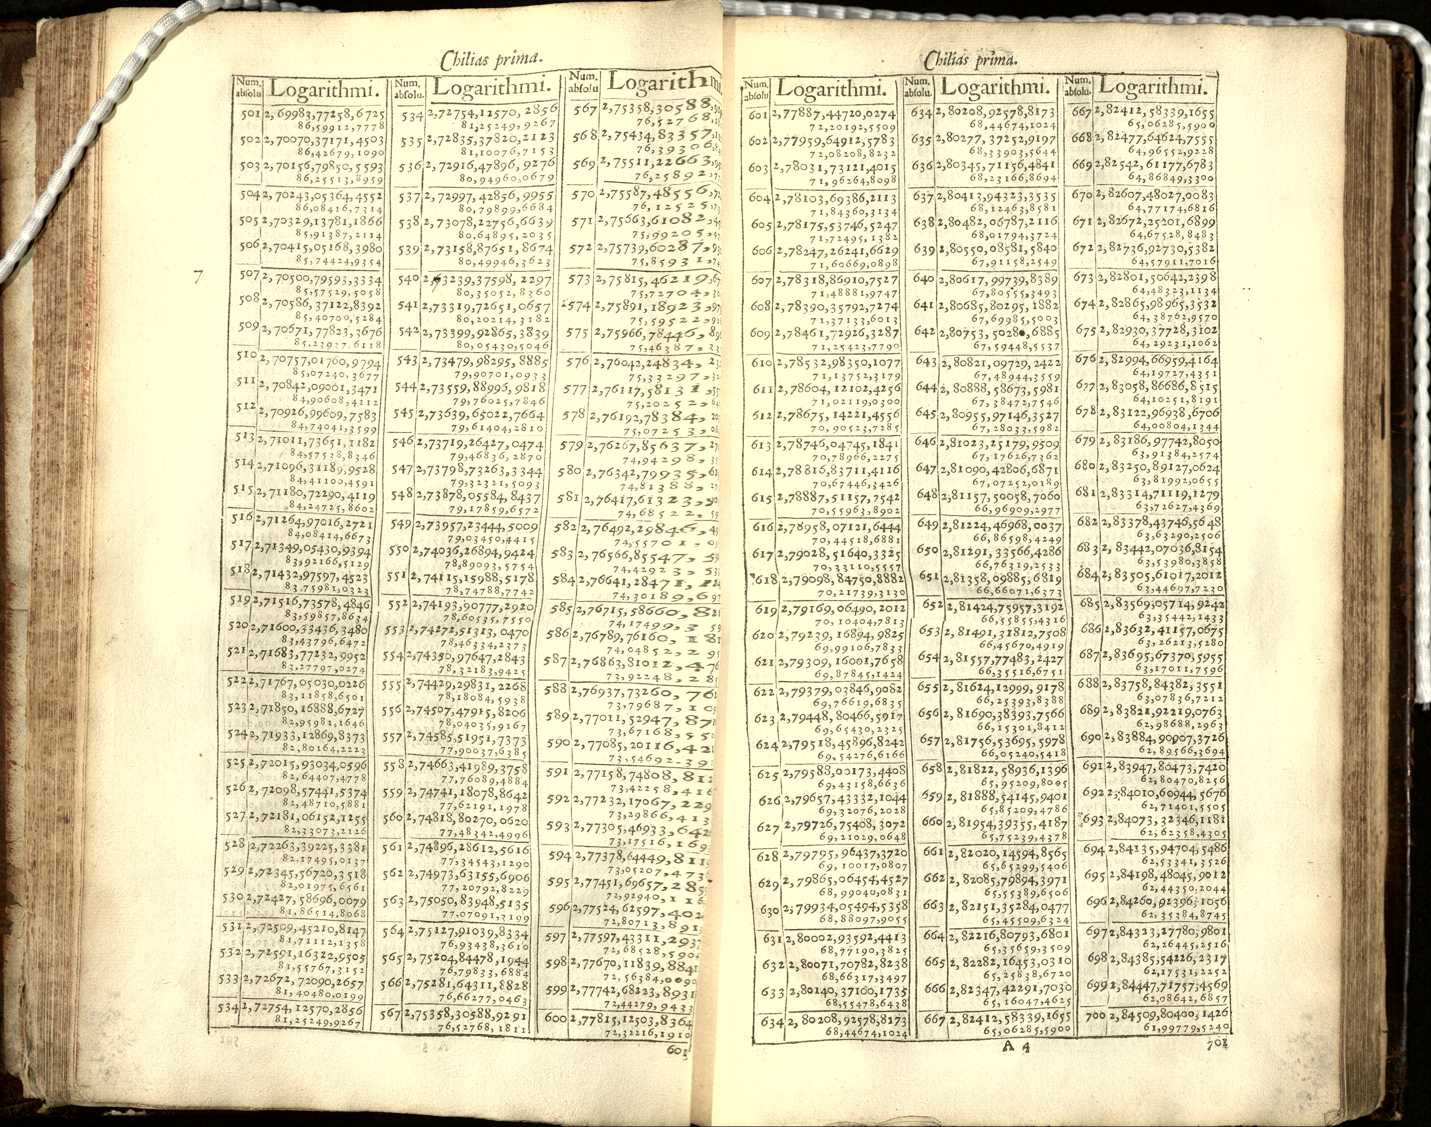 Chilias prima.
Num. absolu. Logarithmi.
501 2,69983,77258,6725
86,59912,7778
502 2,70070,37171,4503
86,42679,1090
503 2,70156,79850,5593
86,25513,8959
504 2,70243,05364,4552
86,08416,7314
505 2,70329,13781,1866
85,91387,2114
506 2,70415,05168,3980
85,74424,9354
507 2,70500,79593,3334
85,57529,5058
508 2,70586,37122,8392
85,40700,5284
509 2,70671,77823,3676
85,23937,6118
510 2,70757,01760,9794
85,07240,3677
511 2,70842,09001,3471
84,90608,4112
512 2,70926,99609,7583
84,74041,3599
513 2,71011,73651,1182
84,57538,8346
514 2,71096,31189,9528
84,41100,4591
515 2,71180,72290,4119
84,24725,8602
516 2,71264,97016,2721
84,08414,6673
517 2,71349,05430,9394
83,92166,5129
518 2,71432,97597,4523
83,75981,0323
519 2,71516,73578,4846
83,59857,8634
520 2,71600,33436,3480
83,43796,6472
521 2,71683,77232,9952
83,27797,0274
522 2,71767,05030,0226
83,11858,6501
523 2,71850,16888,6727
82,95981,1646
524 2,71933,12869,8373
82,80164,2223
525 2,72015,93034,0596
82,64407,4778
526 2,72098,57441,5374
82,48710,5881
527 2,72181,06152,1255
82,33073,2126
528 2,72263,39225,3381
82,17495,0137
529 2,72345,56720,3518
82,01975,6561
530 2,72427,58696,0079
81,86514,8068
531 2,72509,45210,8147
81,71112,1358
532 2,72591,16322,9505
81,55767,3152
533 2,72672,72090,2657
81,40480,0199
534 2,72754,12570,2856
81,25249,9267
Num. absolu. Logarithmi.
534 2,72754,12570,2856
81,25249,9267
535 2,72835,37820,2123
81,10076,7153
536 2,72916,47896,9276
80,94960,0679
537 2,72997,42856,9955
80,79899,6684
538 2,73078,22756,6639
80,64895,2035
539 2,73158,87651,8674
80,49946,3623
540 2,73239,37598,2297
80,35052,8360
541 2,73319,72651,0657
80,20214,3182
542 2,73399,92865,3839
80,05430,5046
543 2,73479,98295,8885
79,90701,0933
544 2,73559,88996,9818
79,76025,7846
545 2,73639,65022,7664
79,61404,2810
546 2,73719,26427,0474
79,46836,2870
547 2,73798,73263,3344
79,32321,5093
548 2,73878,05584,8437
79,17859,6572
549 2,73957,23444,5009
79,03450,4415
550 2,74036,26894,9424
78,89093,5754
551 2,74115,15988,5178
78,74788,7742
552 2,74193,90777,2920
78,60535,7550
553 2,74272,51313,0470
78,46334,2373
554 2,74350,97647,2843
78,32183,9425
555 2,74429,29831,2268
78,18084,5938
556 2,74507,47915,8206
78,04035,9167
557 2,74585,51951,7373
77,90037,6385
558 2,74663,41989,3758
77,76089,4884
559 2,74741,18078,8642
77,62191,1978
560 2,74818,80270,0620
77,48342,4996
561 2,74896,28612,5616
77,34543,1290
562 2,74973,63155,6906
77,20792,8229
563 2,75050,83948,5135
77,07091,3199
564 2,75127,91039,8334
76,93438,3610
565 2,75204,84478,1944
76,79833,6884
566 2,75281,64311,8828
76,66277,0463
567 2,75358,30588,9291
76,52768,1811
Num. absolu. Logarith
567 2,75358,30588,
76,52768,
568 2,75434,83357,
76,39306,
569 2,75511,22663,
76,25892,
570 2,75587,48556,
76,12525,
571 2,75663,61082,
75,99205,
572 2,75739,60287,
75,85931,
573 2,75815,46219,
75,72704,
574 2,75891,18923,
75,59522,
575 2,75966,78446,
75,46387,
576 2,76042,24834,
75,33297,
577 2,76117,58131,
75,20252,
578 2,76192,78384,
75,07253,
579 2,76267,85637,
74,94298,
580 2,76342,79935,
74,81388,
581 2,76417,61323,
74,68522,
582 2,76492,29846,
74,55701,
583 2,76566,85547,
74,42923,
584 2,76641,28471,
74,30189,
585 2,76715,58660,
74,17499,
586 2,76789,76160,
74,04852,
587 2,76863,81012,
73,92248,
588 2,76937,73260,
73,79687,
589 2,77011,52947,
73,67168,
590 2,77085,20116,
73,54692
591 2,77158,74808,
73,42258,
592 2,77232,17067,
73,29866,
593 2,77305,46933,
73,17516,
594 2,77378,64449,
73,05207,
595 2,77451,69657,
72,92940,
596 2,77524,62597,
72,80713,
597 2,77597,43311,
72,68528,
598 2,77670,11839,
72,56384,
599 2,77742,68223,8931
72,44279,9433
600 2,77815,12503,8364
72,32216,1910
601
Chilias prima.
Num. absolu. Logarithmi.
601 2,77887,44720,0274
72,20192,5509
602 2,77959,64912,5783
72,08208,8232
603 2,78031,73121,4015
71,96264,8098
604 2,78103,69386,2113
71,84360,3134
605 2,78175,53746,5247
71,72495,1382
606 2,78247,26241,6629
71,60669,0898
607 2,78318,86910,7527
71,48881,9747
608 2,78390,35792,7274
71,37133,6013
609 2,78461,72926,3287
71,25423,7790
610 2,78532,98350,1077
71,13752,3179
611 2,78604,12102,4256
71,02119,0300
612 2,78675,14221,4556
70,90523,7285
613 2,78746,04745,1841
70,78966,2275
614 2,78816,83711,4116
70,67446,3426
615 2,78887,51157,7542
70,55963,8902
616 2,78958,07121,6444
70,44518,6881
617 2,79028,51640,3325
70,33110,5557
618 2,79098,84750,8882
70,21739,3130
619 2,79169,06490,2012
70,10404,7813
620 2,79239,16894,9825
69,99106,7833
621 2,79309,16001,7658
69,87845,1424
622 2,79379,03846,9082
69,76619,6835
623 2,79448,80466,5917
69,65430,2325
624 2,79518,45896,8242
69,54276,6166
625 2,79588,00173,4408
69,43158,6636
626 2,79657,43332,1044
69,32076,2028
627 2,79726,75408,3072
69,21029,0648
628 2,79795,96437,3720
69,10017,0807
629 2,79865,06454,4527
68,99040,0831
630 2,79934,05494,5358
68,88097,9055
631 2,80002,93592,4413
68,77190,3825
632 2,80071,70782,8238
68,66317,3497
633 2,80140,37100,1735
68,55478,6438
634 2,80208,92578,8173
68,44674,1024
Num. absolu. Logarithmi.
634 2,80208,92578,8173
68,44674,1024
635 2,80277,37252,9197
68,33903,5644
636 2,80345,71156,4841
68,23166,8694
637 2,80413,94323,3535
68,12463,8581
638 2,80482,06787,2116
68,01794,3724
639 2,80550,08581,5840
67,91158,2549
640 2,80617,99739,8389
67,80555,3493
641 2,80685,80295,1882
67,69985,5003
642 2,80753,5028,6885
67,59448,5537
643 2,80821,09729,2422
67,48944,3559
644 2,80888,58673,5981
67,38472,7546
645 2,80955,97146,3527
67,28033,5982
646 2,81023,25179,9509
67,17626,7362
647 2,81090,42806,6871
67,07252,0189
648 2,81157,50058,7060
66,96909,2977
649 2,81224,46968,0037
66,86598,4249
650 2,81291,33566,4286
66,76319,2533
651 2,81358,09885,6819
66,66071,6373
652 2,81424,75957,3192
66,55855,4316
653 2,81491,31812,7508
66,45670,4919
654 2,81557,77483,2427
66,35516,6751
655 2,81624,12999,9178
66,25393,8388
656 2,81690,38393,7566
66,15301,8412
657 2,81756,53695,5978
66,05240,5418
658 2,81822,58936,1396
65,95209,8005
659 2,81888,54145,9401
65,85209,4786
660 2,81954,39355,4187
65,75239,4378
661 2,82020,14594,8565
65,65299,5406
662 2,82085,79894,3971
65,55389,6506
663 2,82151,35284,0477
65,45509,6324
664 2,82216,80793,6801
65,35659,3509
665 2,82282,16453,0310
65,25838,6720
666 2,82347,42291,7030
65,16047,4625
667 2,82412,58339,1655
65,06285,5900
A 4
Num. absolu. Logarithmi.
667 2,82412,58339,1655
65,06285,5900
668 2,82477,64624,7555
64,96552,9228
669 2,82542,61177,6783
64,86849,3300
670 2,82607,48027,0083
64,77174,6816
671 2,82672,25201,6899
64,67528,8483
672 2,82736,92730,5382
64,57911,7016
673 2,82801,50642,2398
64,48323,1134
674 2,82865,98965,3532
64,38762,9570
675 2,82930,37728,3102
64,29231,1062
676 2,82994,66959,4164
64,19727,4351
677 2,83058,86686,8515
64,10251,8191
678 2,83122,96938,6706
64,00804,1344
679 2,83186,97742,8050
63,91384,2574
680 2,83250,89127,0624
63,81992,0655
681 2,83314,71119,1279
63,72627,4369
682 2,83378,43746,5648
63,63290,2506
683 2,83442,07036,8154
63,53980,3858
684 2,83505,61017,2012
63,44697,7230
685 2,83569,05714,9242
63,35442,1433
686 2,83632,41157,0675
63,26213,5280
687 2,83695,67370,5955
63,17011,7596
688 2,83758,84382,3551
63,07836,7212
689 2,83821,92219,0763
62,98688,2963
690 2,83884,90907,3726
62,89566,3694
691 2,83947,80473,7420
62,80470,8256
692 2,84010,60944,5676
62,71401,5505
693 2,84073,32346,1181
62,62358,4305
694 2,84135,94704,5486
62,53341,3526
695 2,84198,48045,9012
62,44350,2044
696 2,84260,92396,1056
62,35384,8745
697 2,84323,27780,9801
62,26445,2516
698 2,84385,54226,2317
62,17531,2252
699 2,84447,71757,4569
62,08642,6857
700 2,84509,80400,1426
61,99779,5240
701